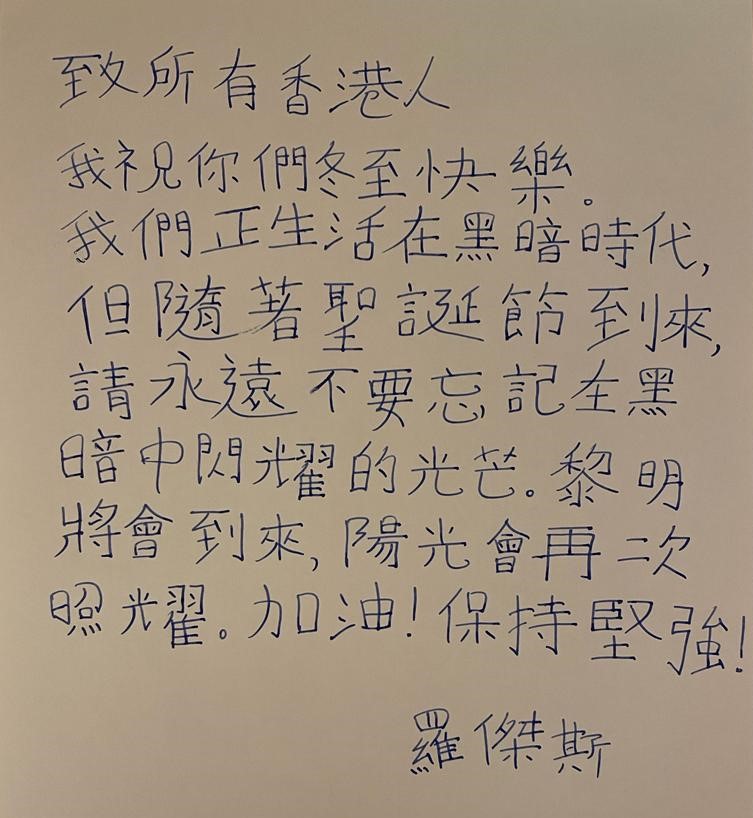 致所有香港人
我祝你們冬至快樂。
我們正生活在黑暗時代,
但隨著聖誕節到來,
請永遠不要忘記在黑
暗中閃耀的光芒。黎明
將會到來,陽光會再次
照耀。加油!保持堅強!
羅傑斯